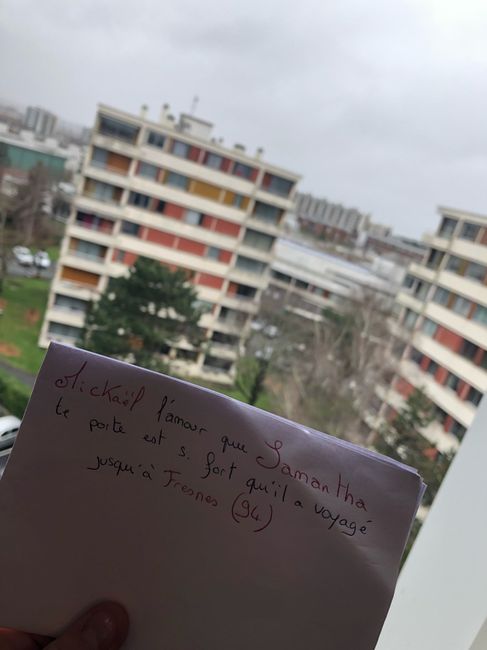 Mickaël l'amour que Samantha
te porte est si fort qu'il a voyagé
jusqu'à Fresnes (94)